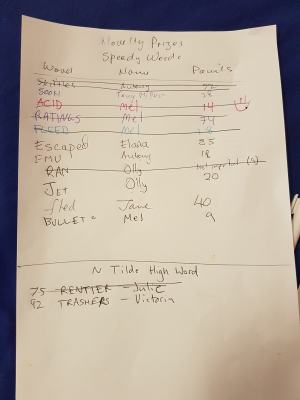 Novelty Prizes
Speedy Words
Word Name Points
Antony
SOON
ACID Mel 14
RATINGS Mel 74
FLEED Mel
Escaped Elaina 85
EMU Antony 18
RAN Olly
JET Olly 20
fled Jane 40
BULLET Mel 9
N Tilde High Word
75 RENTIER - Julie
92 TRASHERS - Victoria